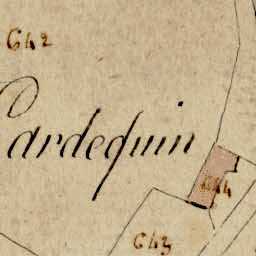 642
Pardequin
644
643